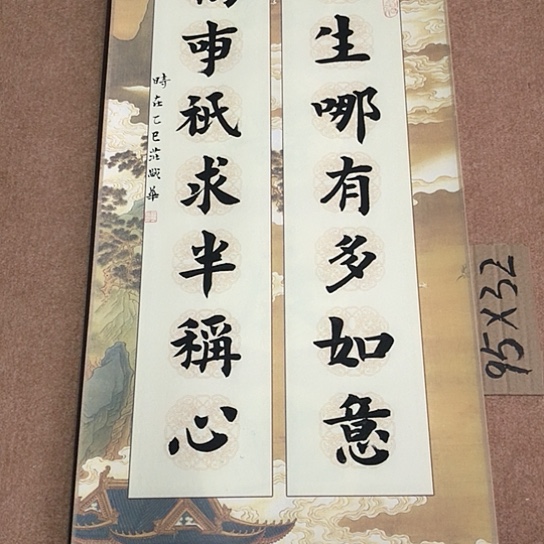 生哪有多如意
事祇求半稱心
時在乙巳
95X52